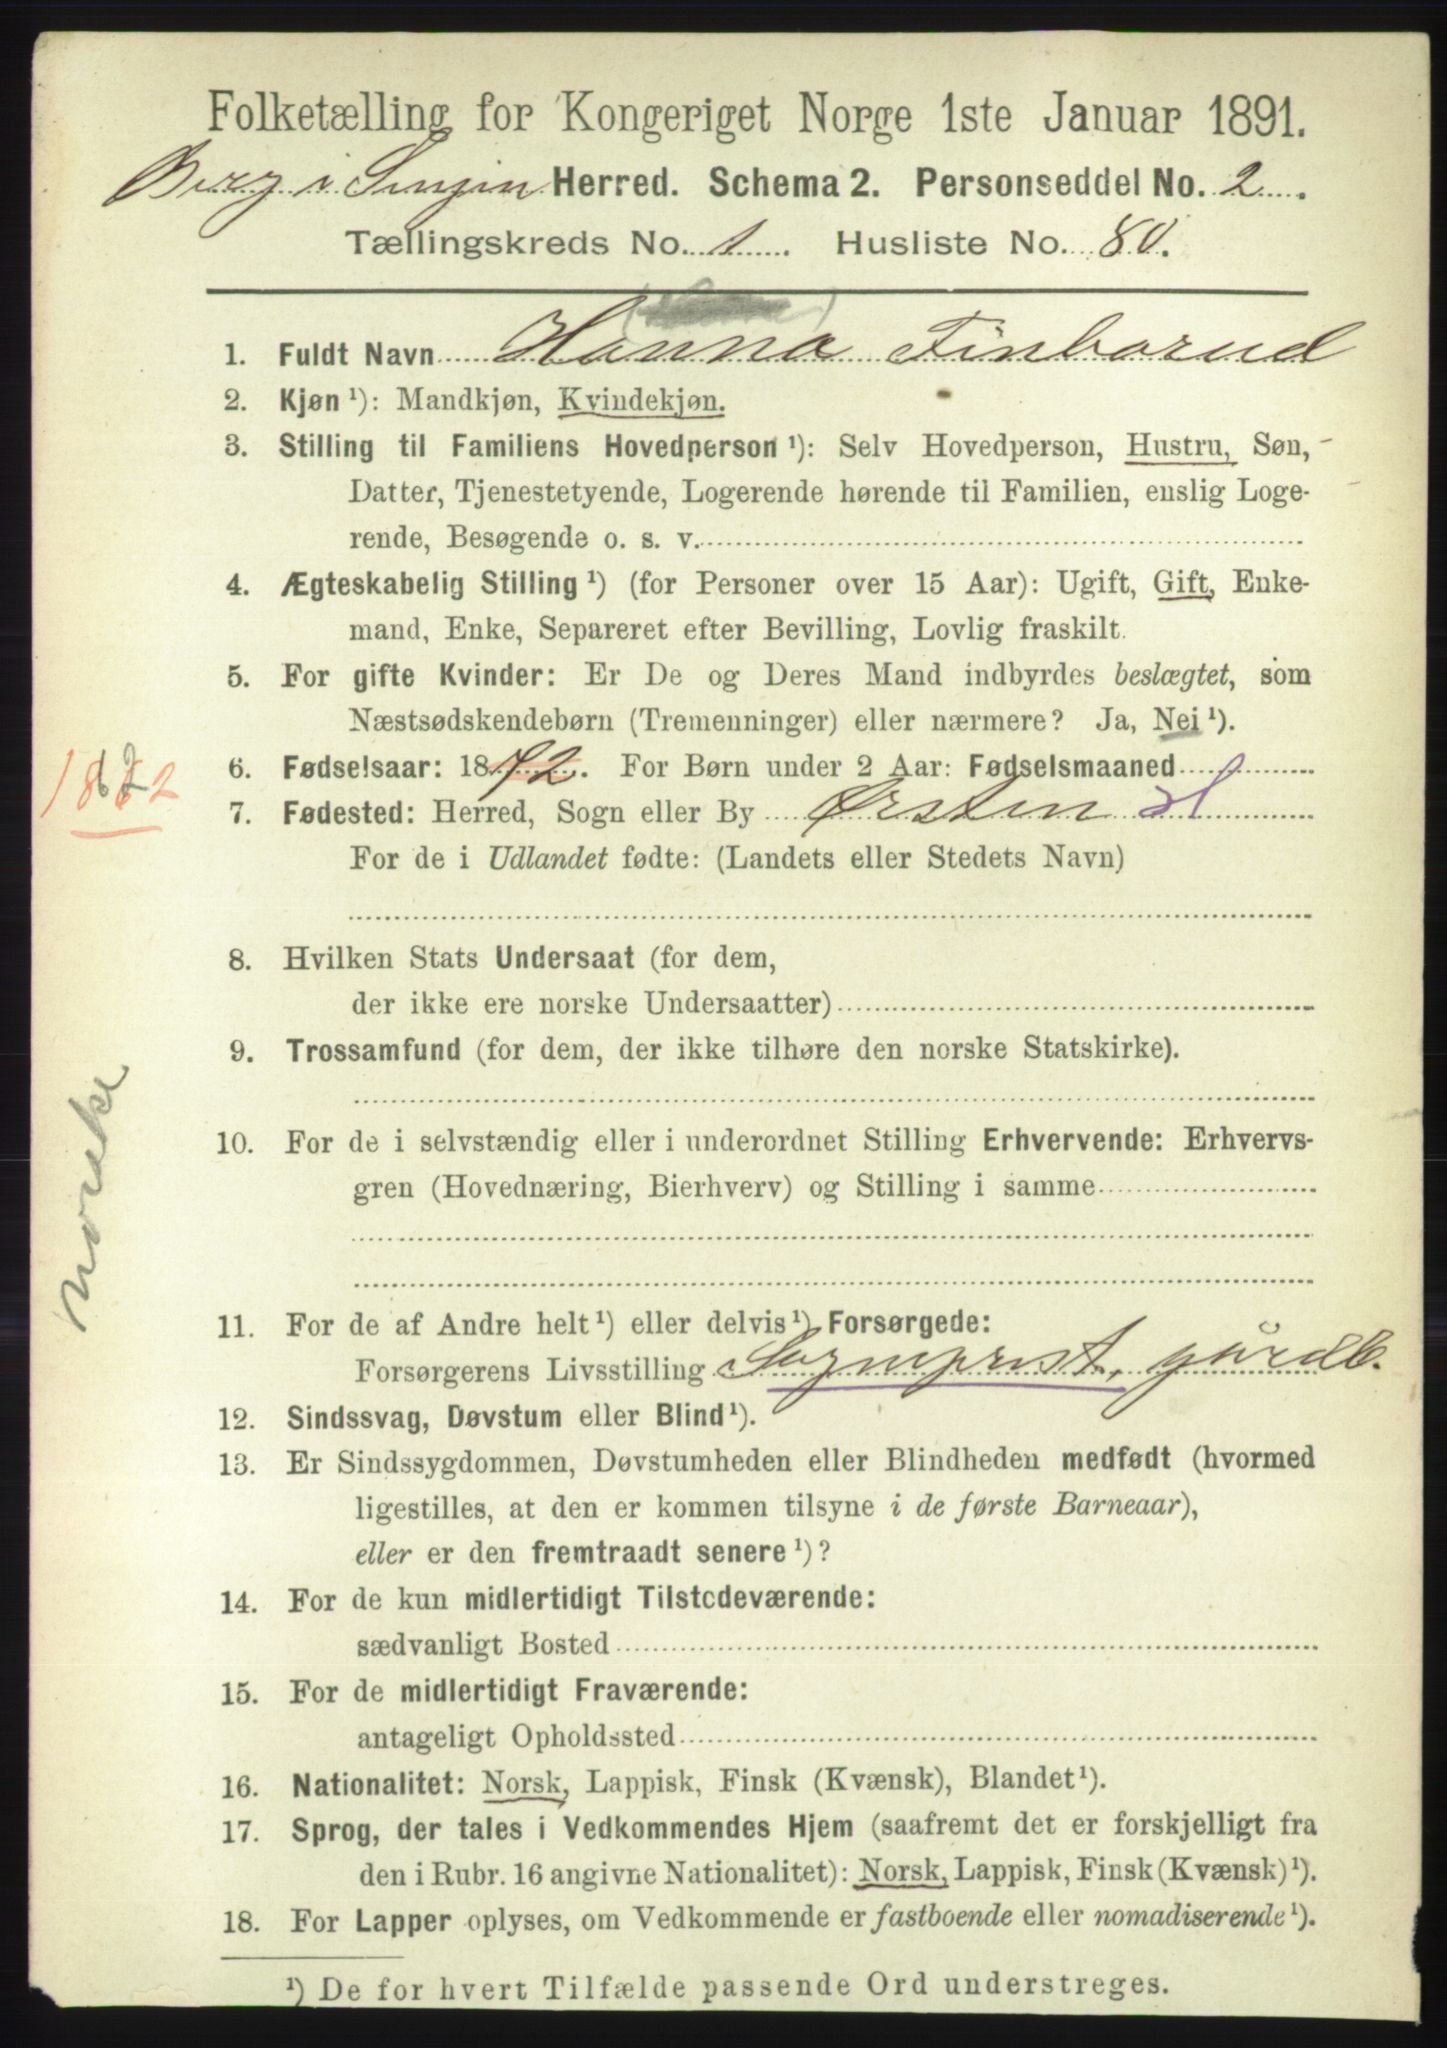 Folketælling for Kongeriget Norge 1ste Januar 1891.
Berg i Senjen Herred. Schema 2. Personseddel No. 2.
Tællingskreds No. 1. Husliste No. 80.
1. Fuldt Navn Hanna Finborud
2. Kjøn ¹): Mandkjøn, Kvindekjøn.
3. Stilling til Familiens Hovedperson ¹): Selv Hovedperson, Hustru, Søn,
Datter, Tjenestetyende, Logerende hørende til Familien, enslig Loge-
rende, Besøgende o. s. v.
4. Ægteskabelig Stilling ¹) (for Personer over 15 Aar): Ugift, Gift, Enke-
mand, Enke, Separeret efter Bevilling, Lovlig fraskilt.
5. For gifte Kvinder: Er De og Deres Mand indbyrdes beslægtet, som
Næstsødskendebørn (Tremenninger) eller nærmere? Ja, Nei ¹).
1862
6. Fødselsaar: 1872. For Børn under 2 Aar: Fødselsmaaned
7. Fødested: Herred, Sogn eller By Ørsten
For de i Udlandet fødte: (Landets eller Stedets Navn)
8. Hvilken Stats Undersaat (for dem,
der ikke ere norske Undersaatter)
9. Trossamfund (for dem, der ikke tilhøre den norske Statskirke).
norske
10. For de i selvstændig eller i underordnet Stilling Erhvervende: Erhvervs-
gren (Hovednæring, Bierhverv) og Stilling i samme
11. For de af Andre helt ¹) eller delvis ¹) Forsørgede:
Forsørgerens Livsstilling Sogneprest, gårdb.
12. Sindssvag, Døvstum eller Blind ¹).
13. Er Sindssygdommen, Døvstumheden eller Blindheden medfødt (hvormed
ligestilles, at den er kommen tilsyne i de første Barneaar),
eller er den fremtraadt senere ¹)?
14. For de kun midlertidigt Tilstedeværende:
sædvanligt Bosted
15. For de midlertidigt Fraværende:
antageligt Opholdssted
16. Nationalitet: Norsk, Lappisk, Finsk (Kvænsk), Blandet ¹).
17. Sprog, der tales i Vedkommendes Hjem (saafremt det er forskjelligt fra
den i Rubr. 16 angivne Nationalitet): Norsk, Lappisk, Finsk (Kvænsk) ¹).
18. For Lapper oplyses, om Vedkommende er fastboende eller nomadiserende ¹).
¹) De for hvert Tilfælde passende Ord understreges.